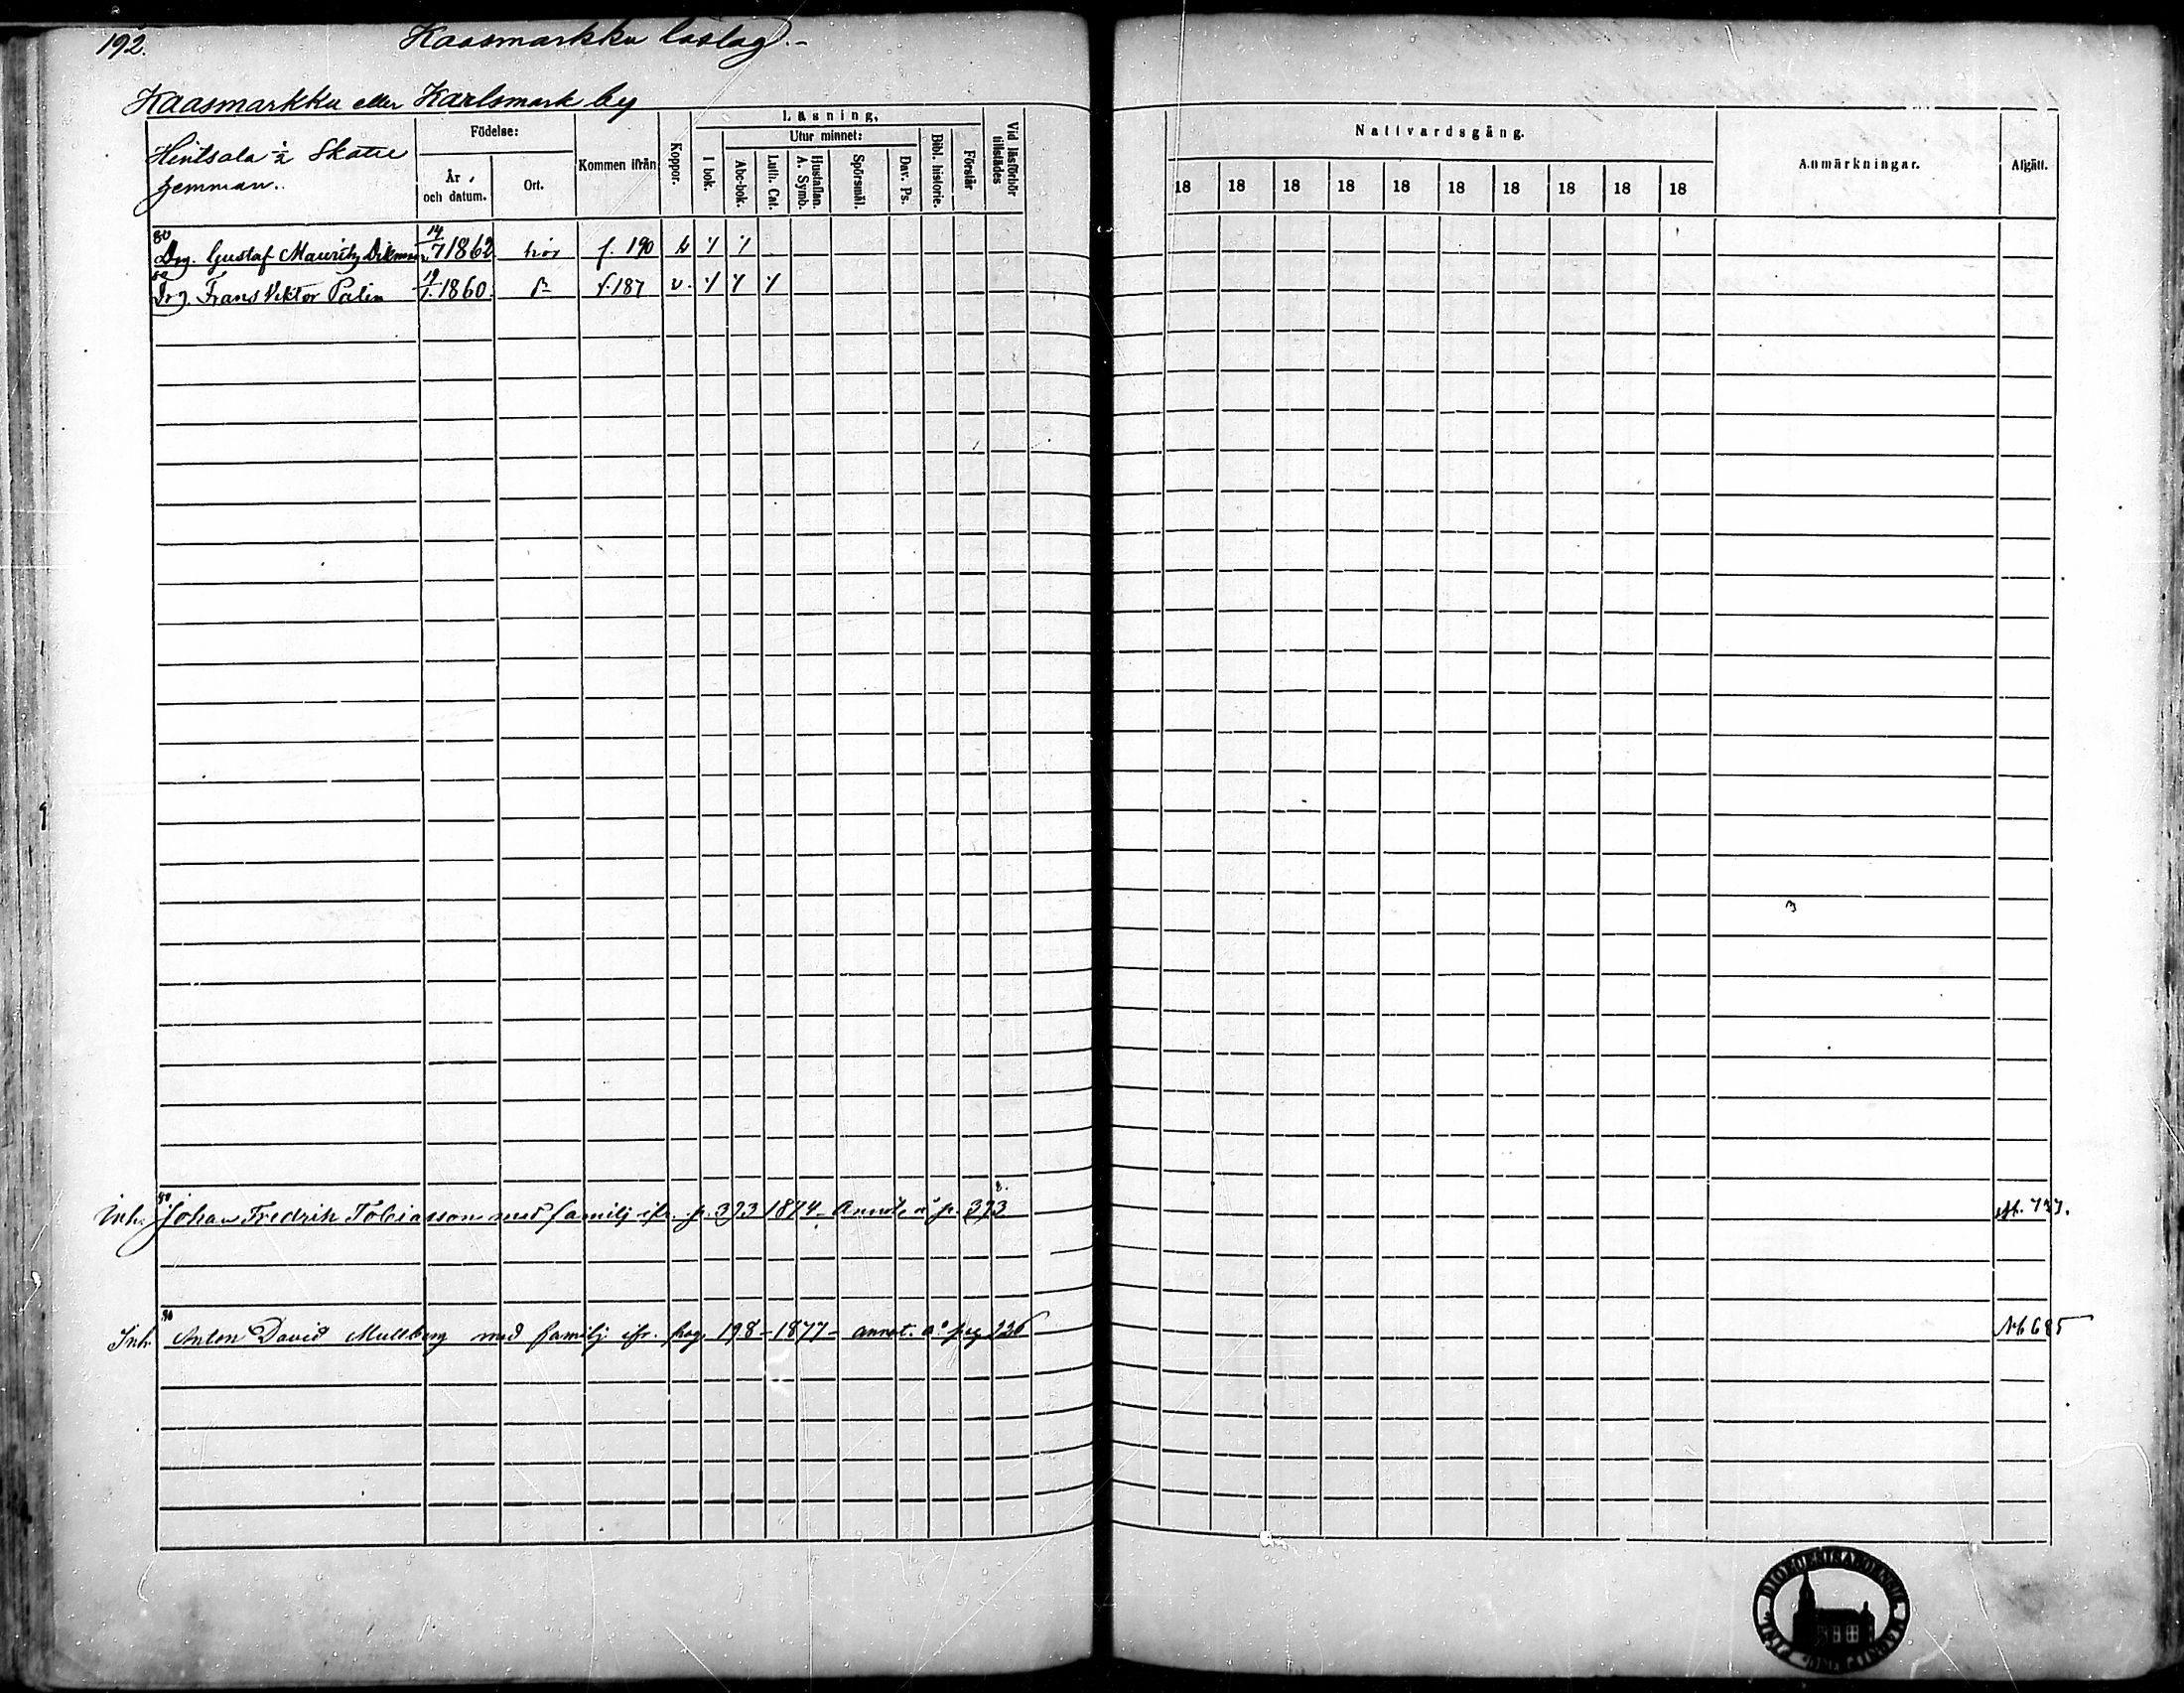 192.
Kaasmarkku läslag.-
Kaasmarkku eller Karlsmark by
Hintsala ½ Skatte
hemman.
Födelse:
År och datum.
Ort.
Kommen ifrån
Koppor.
Läsning,
I bok.
Utur minnet:
Abc-bok.
Luth. Cat.
Hustaflan. A. Symb.
Spörsmål.
Dav. Ps.
Bibl. historie.
Förstår
Vid läsförhör tillstädes
Nattvardsgång.
18 18 18 18 18 18 18 18 18 18
Anmärkningar.
Afgått.
80
Drg. Gustaf Mauritz 14/7 1862 här f. 190
80
Drg Frans Viktor Palin 19/1 1860 f. 187 v.
Inh. 80 Johan Fredrik Tobiasson med familj ifr. p. 373 1874 - Annot. å p. 373 737.
Inh. 80 Anton David Mullberg med familj ifr. pag. 198 - 1877 - annot. å pag 226 Nb 685